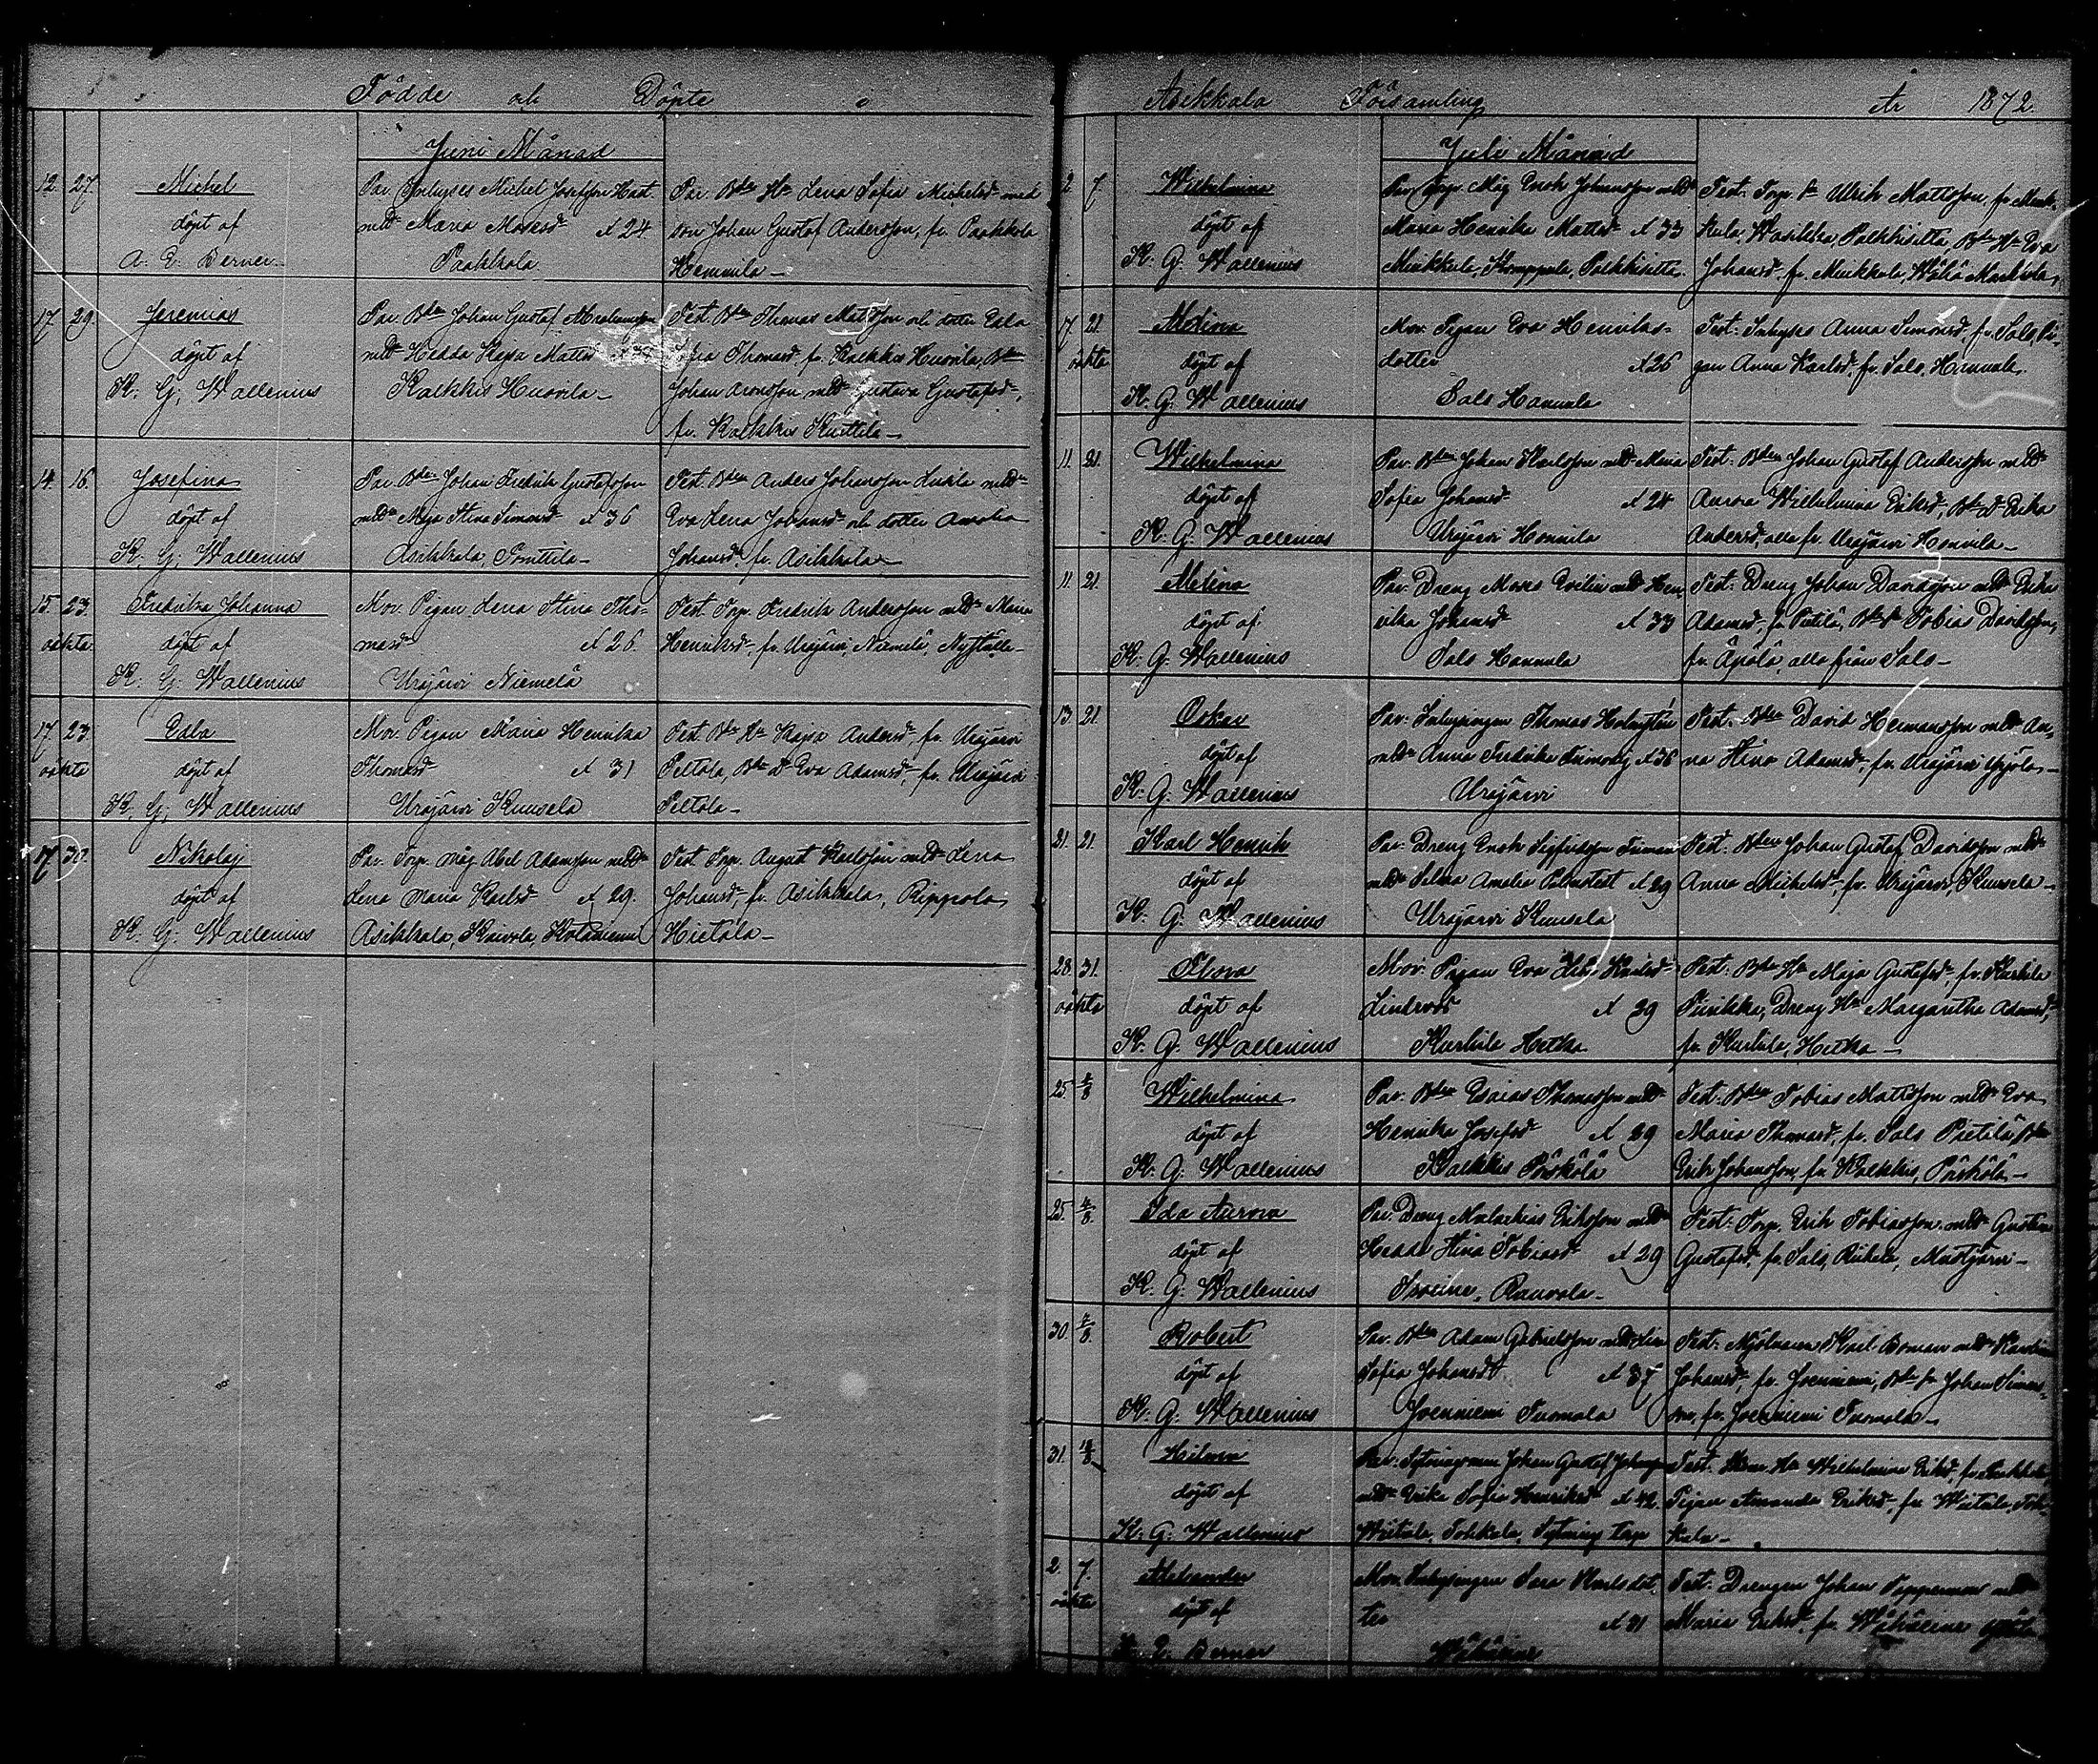 Födde och Döpte i
Juni Månad
12. 27. Michel
döpt af
A. E. Berner
Par. Inhyses Michel Josefsson Hast.
mldr Maria Mosesdr Å 24.
Paakkola
Par. Bde Hu Lena Sofia Michelsdr med
son Johan Gustaf Andersson, fr. Paakkola
Hemmila
17. 29. Jeremias
döpt af
K. G. Wallenius
Par. Bden Johan Gustaf Abrahamsson
mldr Hedda Kajsa Mattsdr
Kalkkis Huovila
Test. Bden Thomas Mattsson och dotter Edla
Sofia Thomasdr, fr. Kalkkis Huovila, Bden
Johan Aronsson mldr Gustava Gustafsdr,
fr. Kalkkis Knuttila
14. 16. Josefina
döpt af
K. G. Wallenius
Par. Bden Johan Fredrik Gustafsson
mldr Maja Stina Simonsdr Å 36
Asikkala, Prnttila
Test. Bden Anders Johansson mldr
Eva Lena Johansdr och dotter Amalia
Johansdr fr. Asikkala
15. 23. Fredrika Johanna
oäkta döpt af
K. G. Wallenius
Mor. Pigan Lena Stina Tho-
masdr Å 26.
Urajärvi Niemelä
Test. Torp. Fredrik Andersson mldr Maria
Henriksdr fr. Urajärvi, Niemelä, Nyställe
17. 23. Edla
oäkta döpt af
K. G. Wallenius
Mor. Pigan Maria Henrika
Thomasdr Å 31
Urajärvi Kuusela
Test. Bde Hu Kajsa Andersdr, fr. Urajärvi
Peltola, Bde Dr Eva Adamsdr, fr. Urajärvi
Peltola
17. 30. Nikolaj
döpt af
K. G. Wallenius
Par. Torp. måg Abel Adamsson mldr
Lena Maria Karlsdr Å 29.
Asikkala, Kaivola, Kotaniemi
Test. Torp. August Karlsson mldr Lena
Johansdr, fr. Asikkala, Rippola
Hietala
Asikkala Församling År 1872.
Juli Månad
2. 7. Wilhelmina
döpt af
K. G. Wallenius
Par. Torp. Måg Enok Johansson mldr
Maria Henrika Mattsdr Å 33
Minkkula, Pulkkisilta
Test. Torp. Sn Ulrik Mattsson, fr. Mink-
kula, Pulkkisilta Bde Hu Eva
Johansdr fr. Minkkula, Wähä
17. 21. Melina
oäkta döpt af
K. G. Wallenius
Mor. Pigan Eva Henriks-
dotter Å 26
Salo Hannula
Test. Inhyses Anna Simonsd, fr. Salo, Pi-
gan Anna Karlsdr, fr. Salo, Hannula
11. 21. Wilhelmina
döpt af
K. G. Wallenius
Par. Bden Johan Karlsson mldr Maria
Sofia Johansdr Å 24
Urajärvi Honnila
Test. Bden Johan Gustaf Andersson mldr
Aurora Wilhelmina Eriksdr, Bde Dr Erika
Andersdr, alla fr. Urajärvi
11. 21. Melina
döpt af
K. G. Wallenius
Par. Dreng Moses Evelin mldr Hen-
rika Johansdr Å 33
Salo Hannula
Test. Dreng Johan Davidsson mldr Erika
Adamsdr, fr. Pietilä, Bde Sn Tobias Davidsson,
fr. Äpölä, alla från Salo
13. 21. Oskar
döpt af
K. G. Wallenius
Par. Inhysingen Thomas Holmsten
mldr Anna Fredrika Å 36
Urajärvi
Test. Bden David Hermansson mldr An-
na Stina Adamsdr, fr. Urajärvi
21. 21. Karl Henrik
döpt af
K. G. Wallenius
Par. Dreng Enok Sigfridsson
mldr Selma Amalia Å 29
Urajärvi Kuusela
Test. Bden Johan Gustaf Davidsson mldr
Anna Michelsdr, fr. Urajärvi, Kuusela
28. 31. Flora
oäkta döpt af
K. G. Wallenius
Mor. Pigan Eva Karlsdr
Lindroos Å 39
Kurhila Hetka
Test. Bde Hu Maja Gustafsdr, fr. Kurhila
Piirikka, Dreng Hu Margaretha Adamsdr,
fr. Kurhila, Hetka
25. 4/8 Wilhelmina
döpt af
K. G. Wallenius
Par. Bden Esaias Thomasson mldr
Henrika Josefsdr Å 29
Kalkkis Pörkölä
Test. Bden Tobias Mattsson mldr Eva
Maria Thomasdr, fr. Salo Pietilä, Bden
Erik Johansson, fr. Kalkkis, Pörkölä
25. 4/8. Ida Aurora
döpt af
K. G. Wallenius
Par. Dreng Malachias Eriksson mldr
Hedda Stina Tobiasdr Å 29
Rauvola
Test. Torp. Erik Tobiasson mldr Gustava
Gustafsdr, fr. Salo, Mustjärvi
30. 4/8. Robert
döpt af
K. G. Wallenius
Par. Bden Adam Gabrielsson mldr
Sofia Johansdr Å 37
Joenniemi Tuomala
Test. Mjölnaren Karl Boman mldr Karolina
Johansdr, fr. Joenniemi, Bde Sn Johan Simons-
son, fr. Joenniemi Tuomala
31. 18/8 Hilma
döpt af
K. G. Wallenius
Par. Sytningsman Johan Gustaf Johansson
mldr Erika Sofia Henriksdr Å 42.
Wiitala, Tokkola, Sytnings torp
Test. Hu Wilhelmina Eriksd, fr.
Pigan Amanda Eriksdr fr. Wiitala, Tok-
kola
2. 7. Alexander
oäkta döpt af
A. E. Berner
Mor. Inhysingen Sara Karlsdot-
ter Å 31
Test. Drengen Johan mldr
Maria Eriksdr, fr.